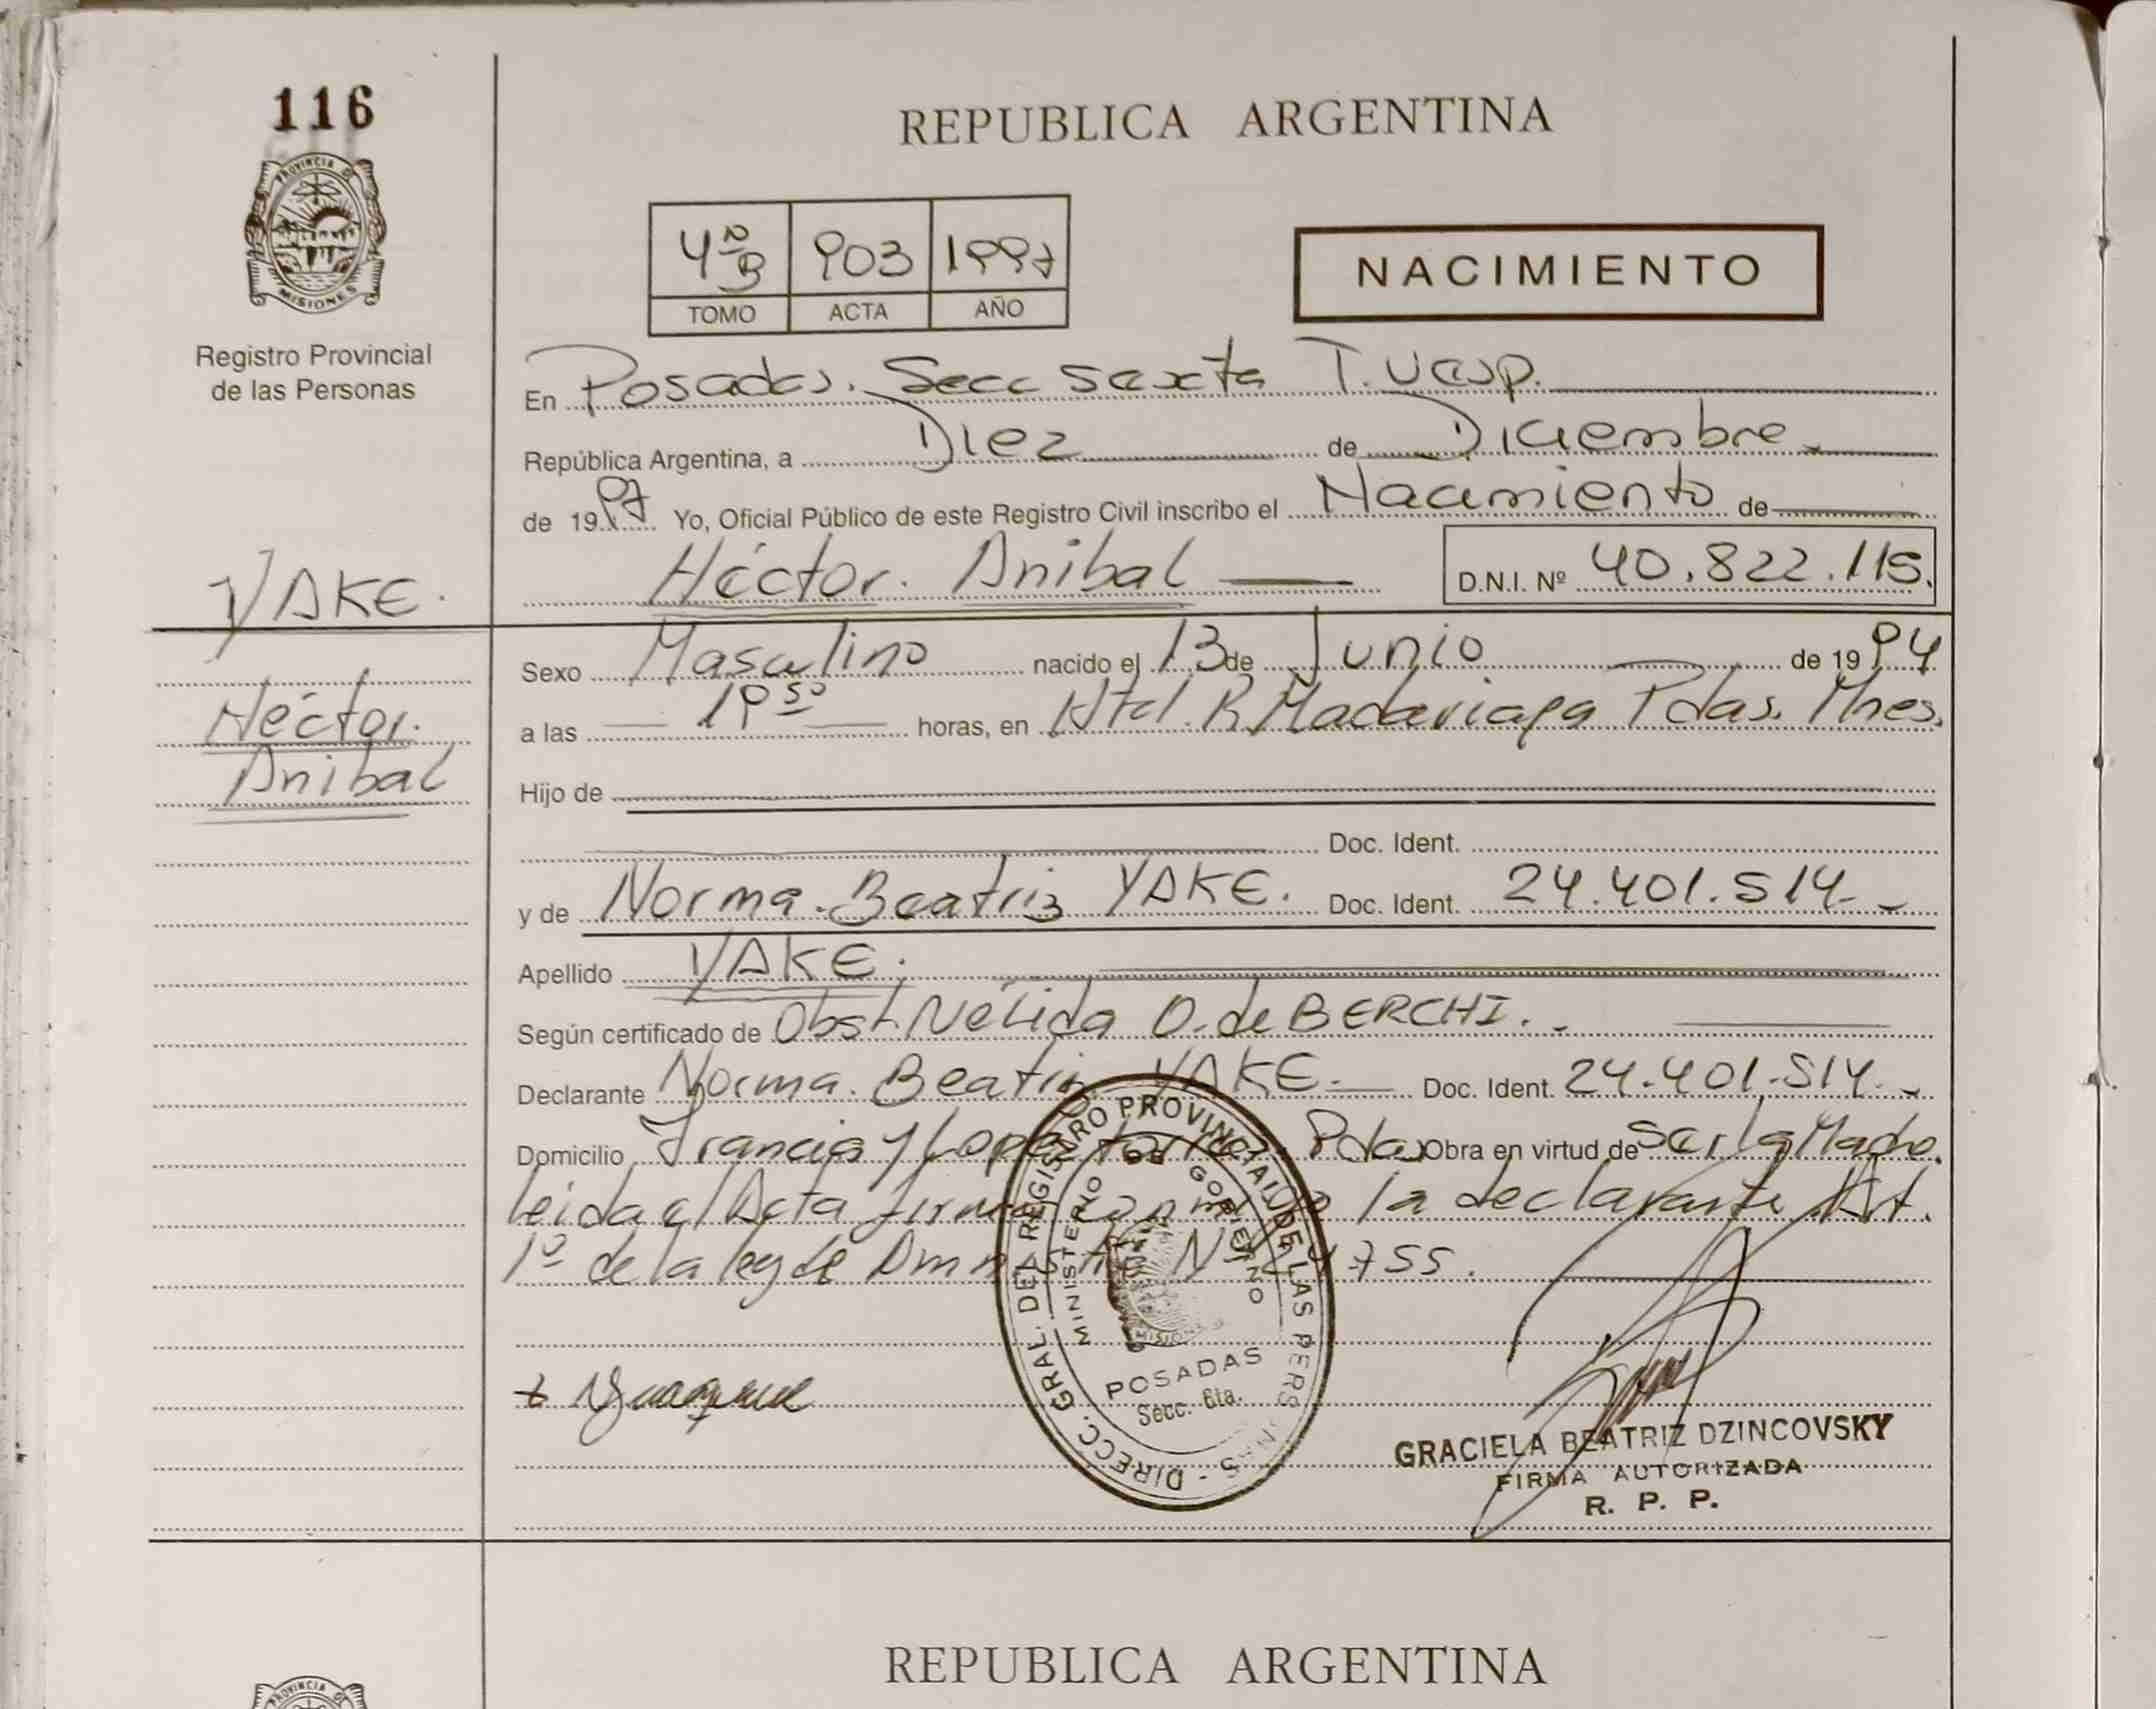 116
REPUBLICA ARGENTINA
PROVINCIA DE
MISIONES
4º B 903 1997
TOMO ACTA AÑO
NACIMIENTO
Registro Provincial
de las Personas
En Posadas. Secc sexta T. Vesp.
República Argentina, a Diez de Diciembre
de 1997 Yo, Oficial Público de este Registro Civil inscribo el Nacimiento de
YAKE.
Héctor. Anibal
D.N.I. Nº 40.822.115.
Sexo Masculino nacido el 13 de Junio de 1994
Héctor.
Anibal
a las 19 50 horas, en Htal. R Madariaga Pdas. Mnes.
Hijo de
Doc. Ident.
y de Norma. Beatriz YAKE. Doc. Ident. 24.401.514
Apellido YAKE.
Según certificado de Obst. Nélida O. de BERCHI.
Declarante Norma. Beatriz YAKE. Doc. Ident. 24.401.514
Domicilio Francia y Lopez Torres Pdas Obra en virtud de Ser la Madre.
leida el Acta firma conmigo la declarante Art.
1º de la ley de Amnistia Nº 755.
DIRECC. GRAL. DEL REGISTRO PROVINCIAL DE LAS PERSONAS
MINISTERIO DE GOBIERNO
MISIONES
POSADAS
Secc. 6ta.
GRACIELA BEATRIZ DZINCOVSKY
FIRMA AUTORIZADA
R. P. P.
REPUBLICA ARGENTINA
PROVINCIA DE